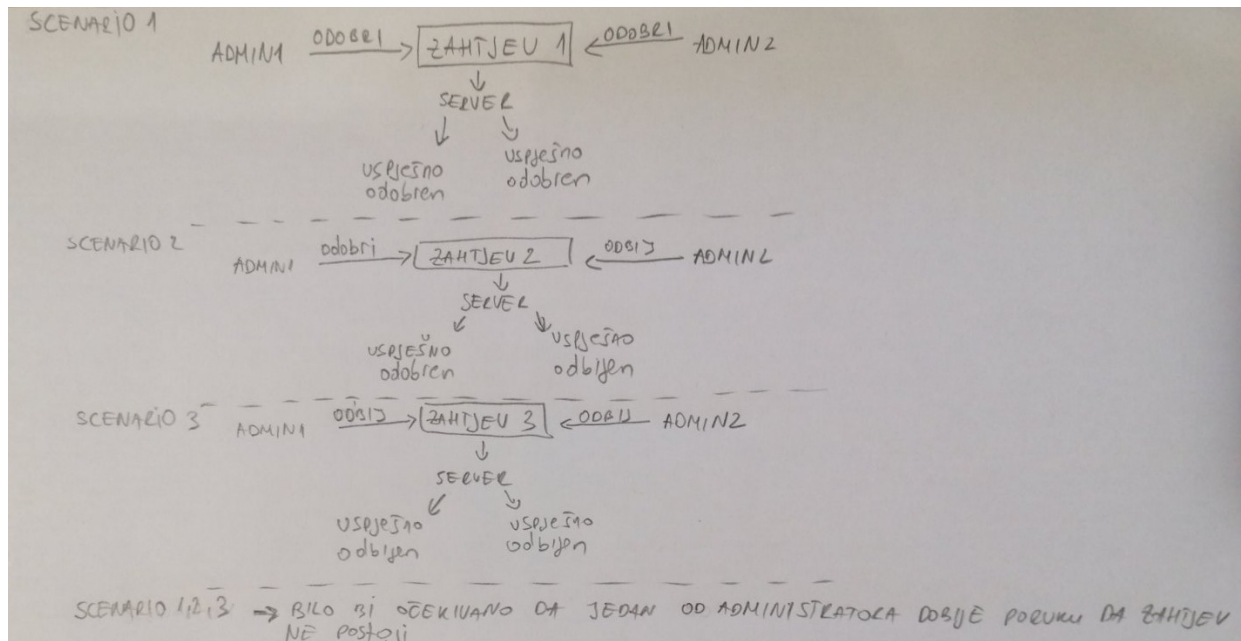 SCENARIO 1
ADMIN1 ODOBRI ZAHTJEV 1 ODOBRI ADMIN2
SERVER
uspješno uspješno
odobren odobren
SCENARIO 2
ADMIN1 odobri ZAHTJEV 2 ODBIJ ADMIN2
SERVER
USPJEŠNO uspješno
odobren odbijen
SCENARIO 3
ADMIN1 ODBIJ ZAHTJEV 3 ODBIJ ADMIN2
SERVER
uspješno uspješno
odbijen odbijen
SCENARIO 1,2,3 → BILO BI OČEKIVANO DA JEDAN OD ADMINISTRATORA DOBIJE PORUKU DA ZAHTJEV
NE POSTOJI